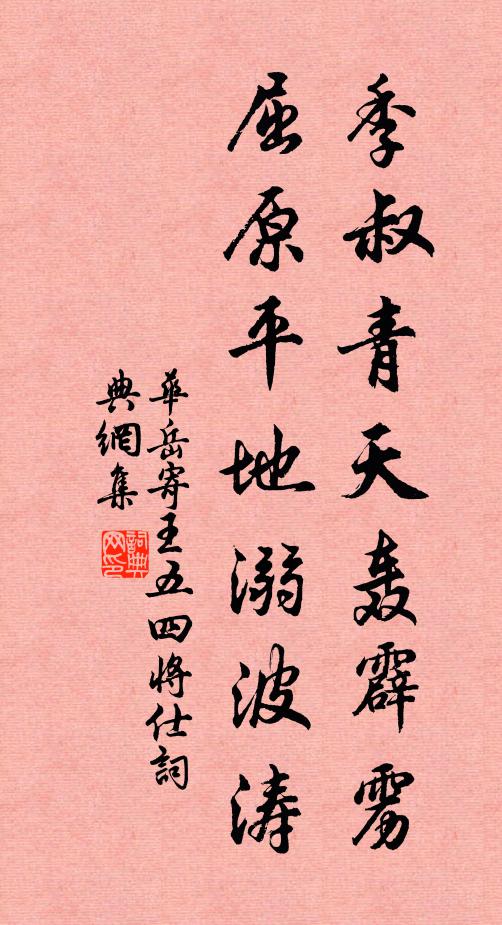 季叔青天轰霹雳
屈原平地溺波涛
华岳寄王五四将仕詞
典網集
詞典網印